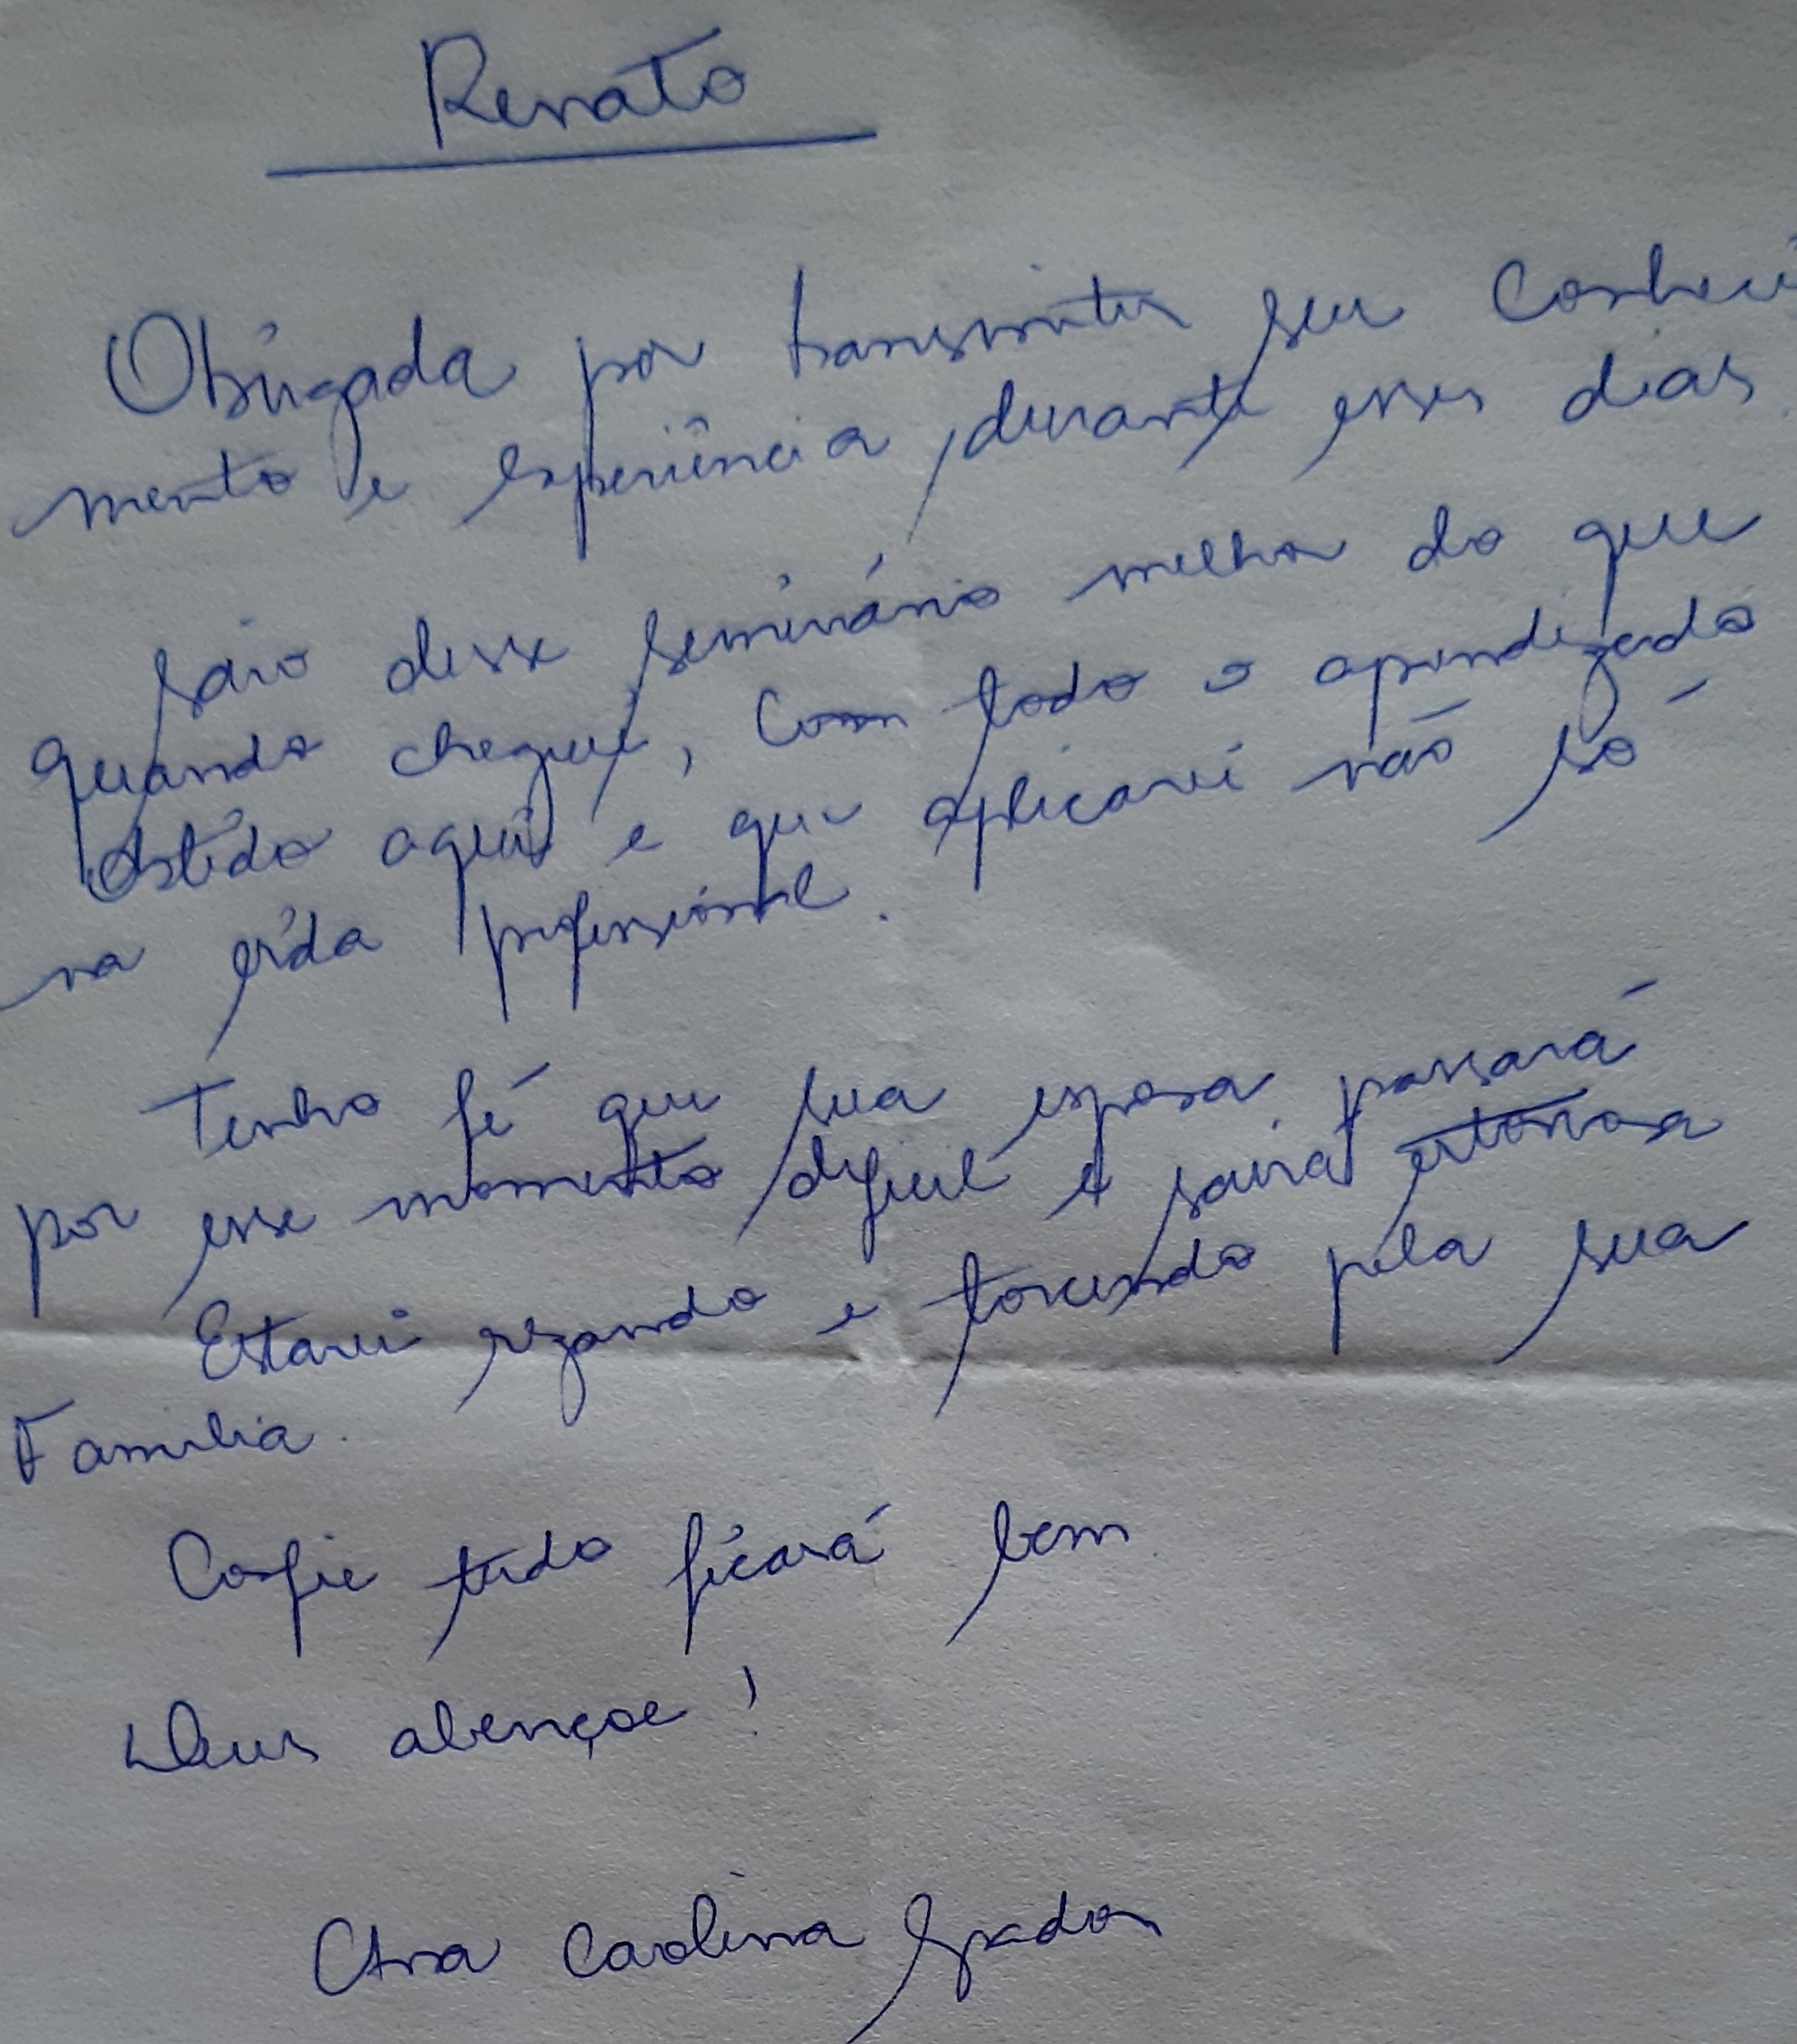 Renato
Obrigada por transmitir seu conheci
mento e experiência, durante esses dias.
Saio desse seminário melhor do que
quando cheguei, com todo o aprendizado
obtido aqui e que aplicarei não só
na vida profissional.
Tenho fé que sua esposa passará
por esse momento difícil e sairá vitoriosa
Estarei rezando e torcendo pela sua
Familia.
Confie tudo ficará bem
Deus abençoe!
Ana Carolina